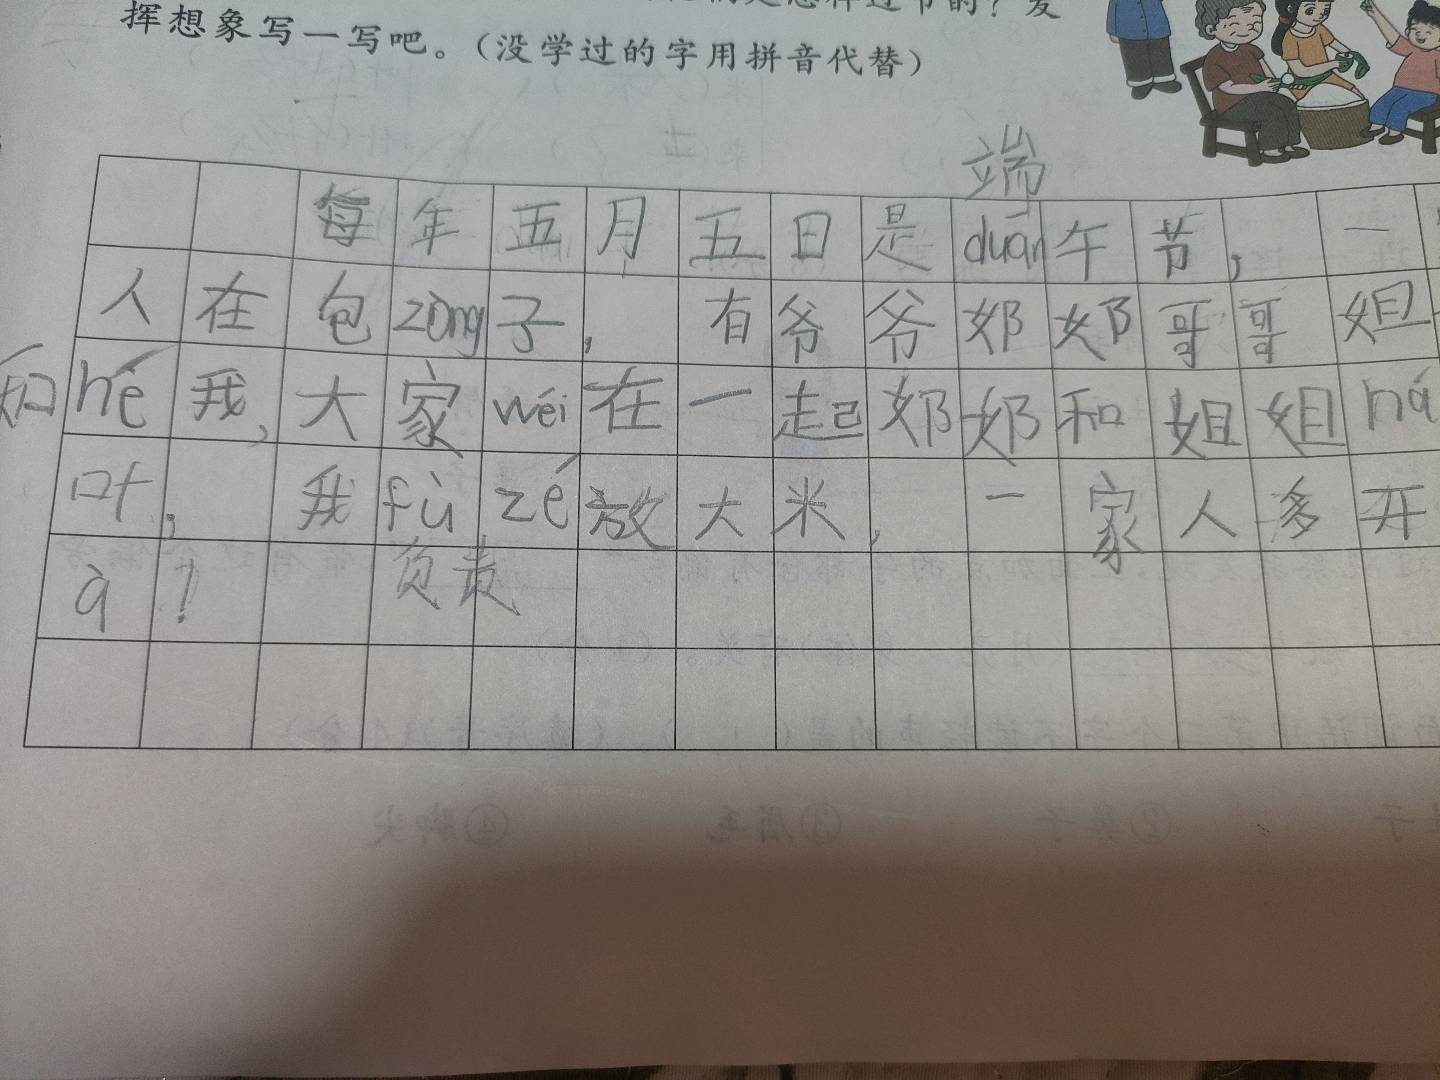 怎样过节的？发
挥想象写一写吧。（没学过的字用拼音代替）
端
每年五月五日是duān午节，一
人在包zòng子，有爷爷奶奶哥哥姐
和hé我，大家wéi在一起奶奶和姐姐ná
叶，我fù zé放大米，一家人多开
à！负责